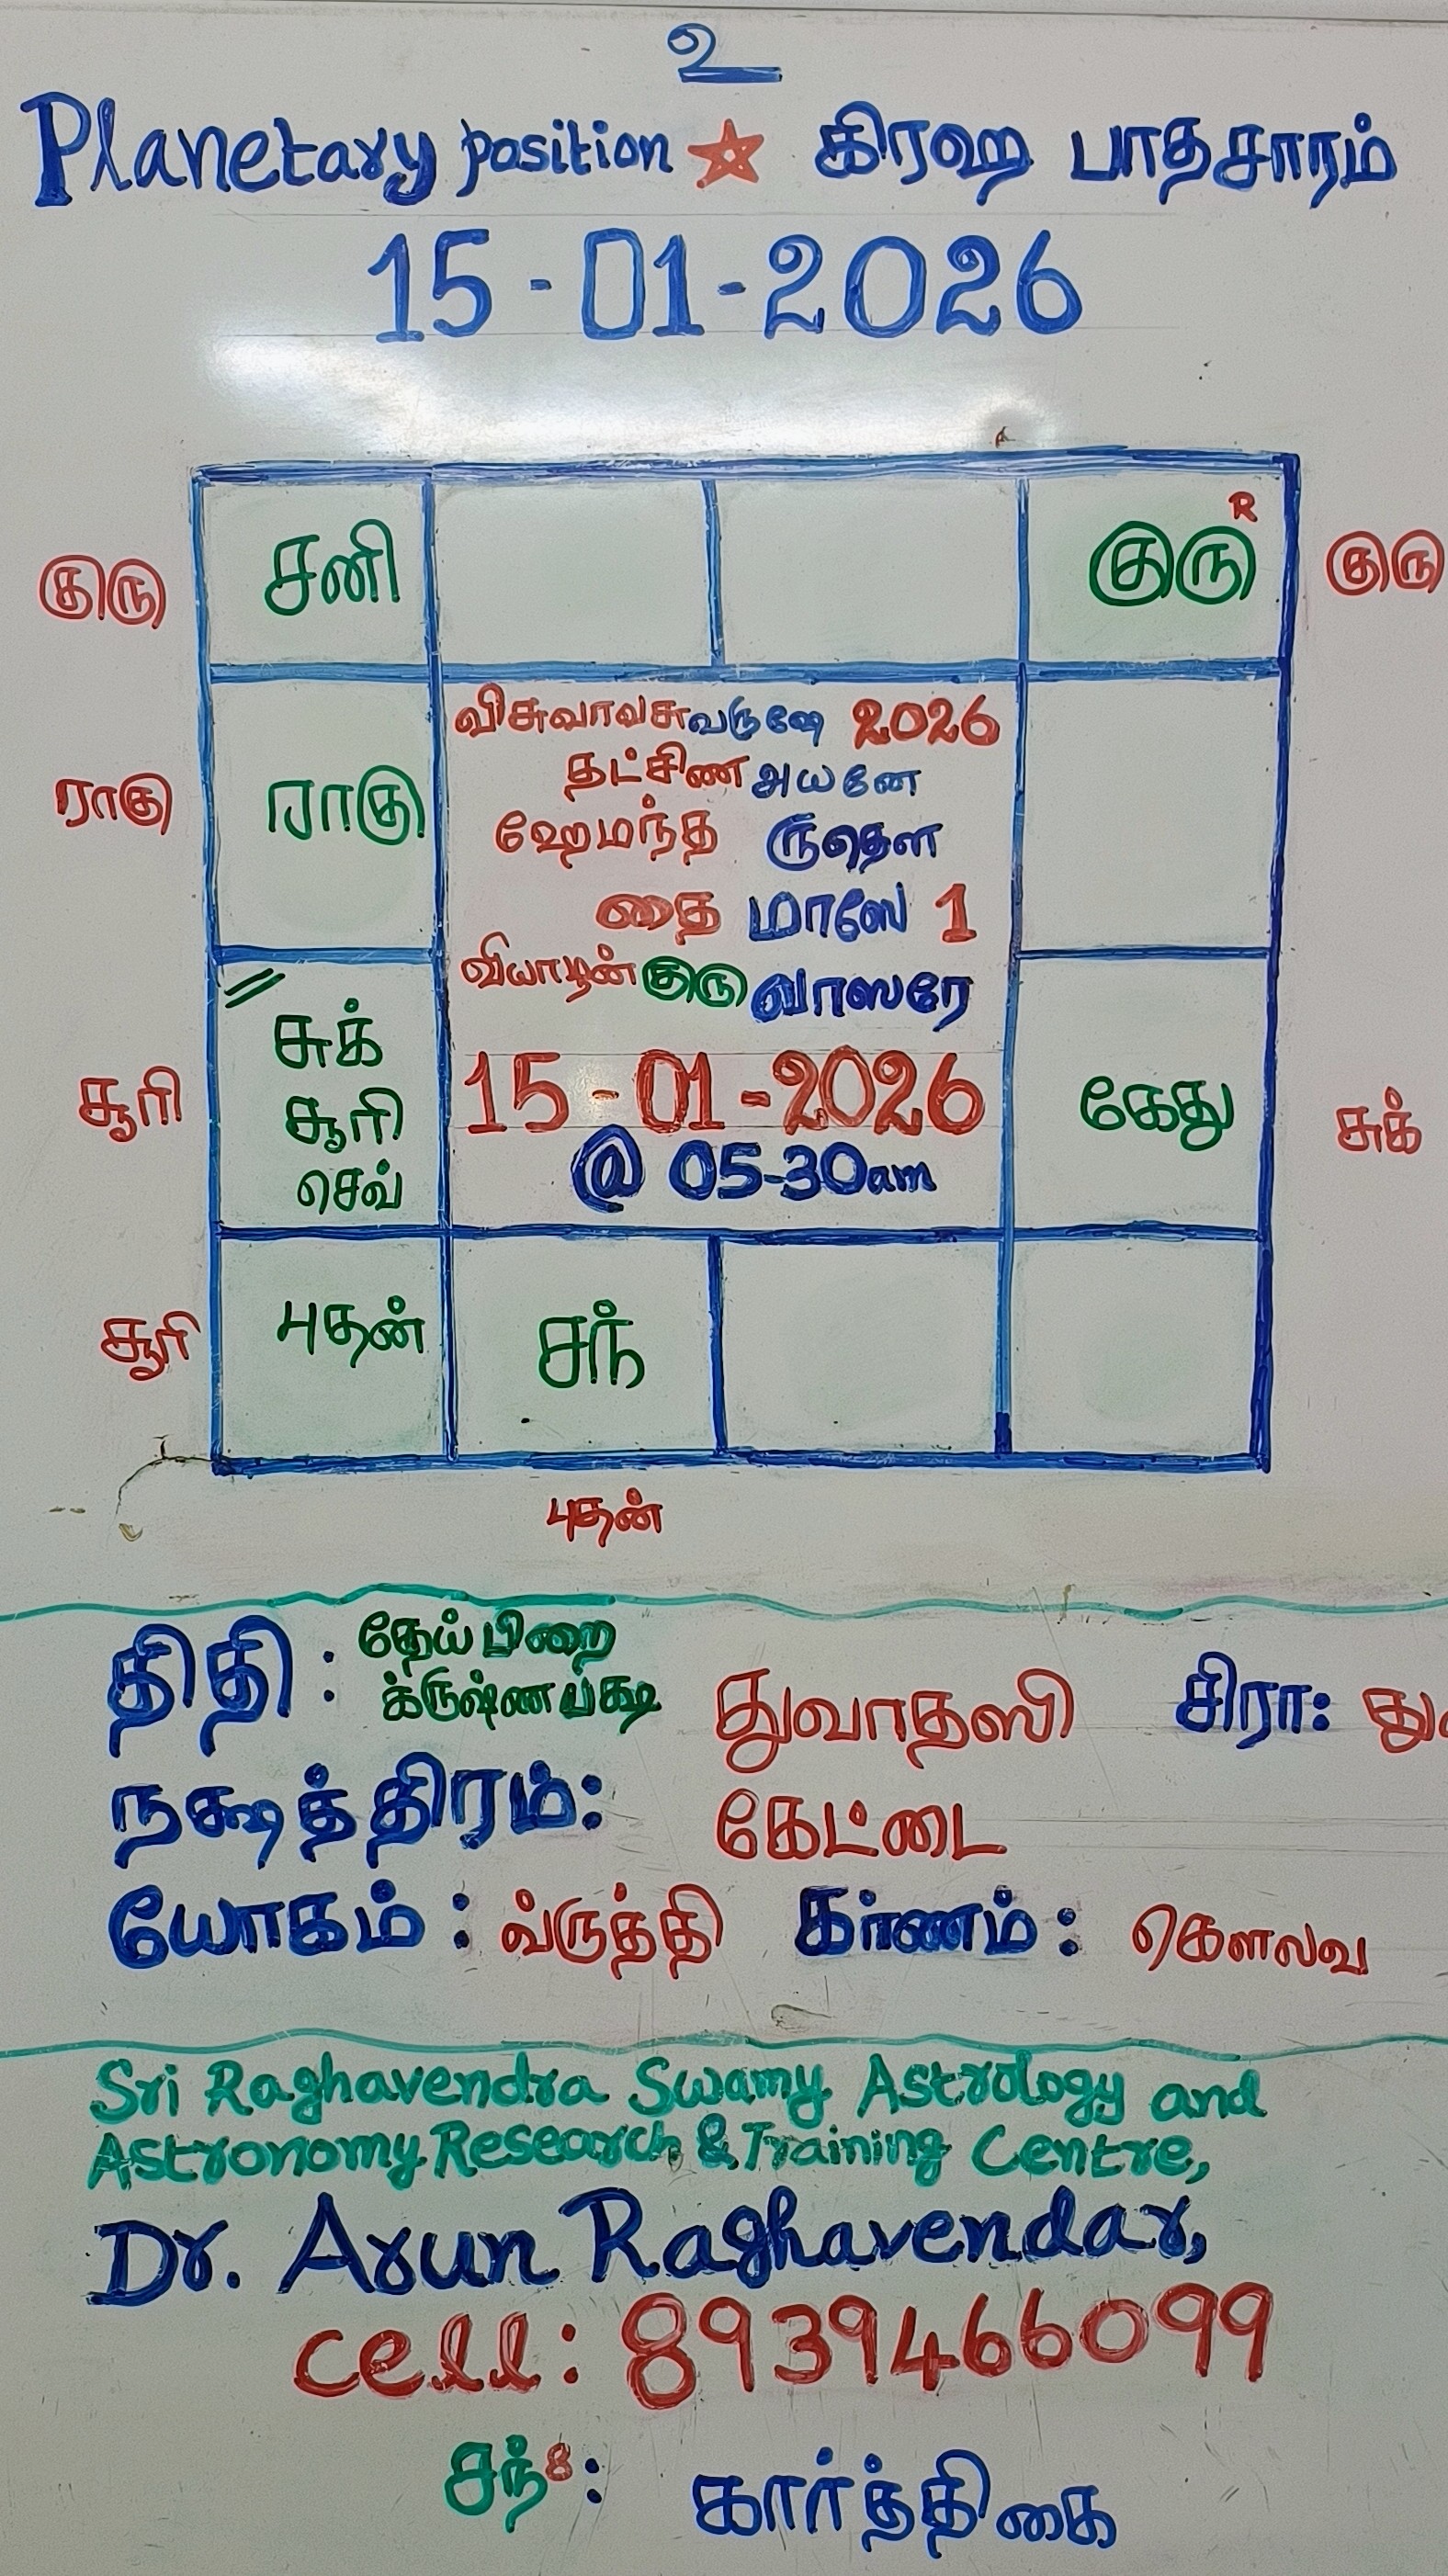 உ
Planetary position ☆ கிரஹ பாதசாரம்
15-01-2026
குரு சனி குரு R குரு
விசுவாவசுவருஷே 2026
தட்சிண அயனே
ராகு ராகு ஹேமந்த ருதௌ
தை மாஸே 1
வியாழன் குரு வாஸரே
சுக்
சூரி சூரி 15-01-2026 கேது சுக்
செவ் @ 05-30am
சூரி புதன் சந்
புதன்
திதி : தேய்பிறை க்ருஷ்ணபக்ஷ துவாதஸி சிரா:
நக்ஷத்திரம்: கேட்டை
யோகம் : வ்ருத்தி கர்ணம் : கௌலவ
Sri Raghavendra Swamy Astrology and
Astronomy Research & Training Centre,
Dr. Arun Raghavendar,
cell: 8939466099
சந்8: கார்த்திகை